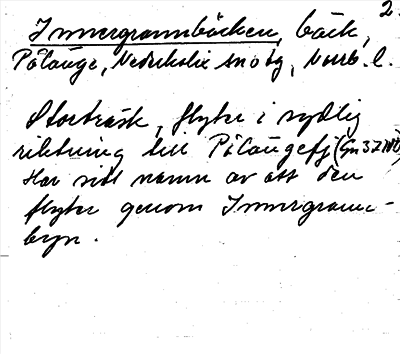 2.
Innergrannbäcken, bäck,
Pålänge, Nederkalix snbg, Norrb. l.
Storträsk, flyter i sydlig
riktning till Pålängefj
Har sitt namn av att den
flyter genom Innergrann-
byn.